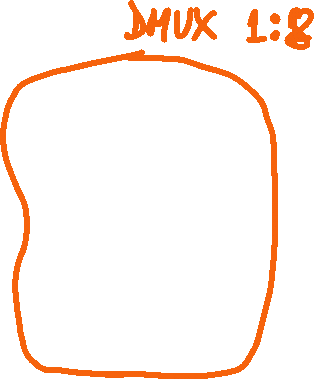 DMUX 1:8